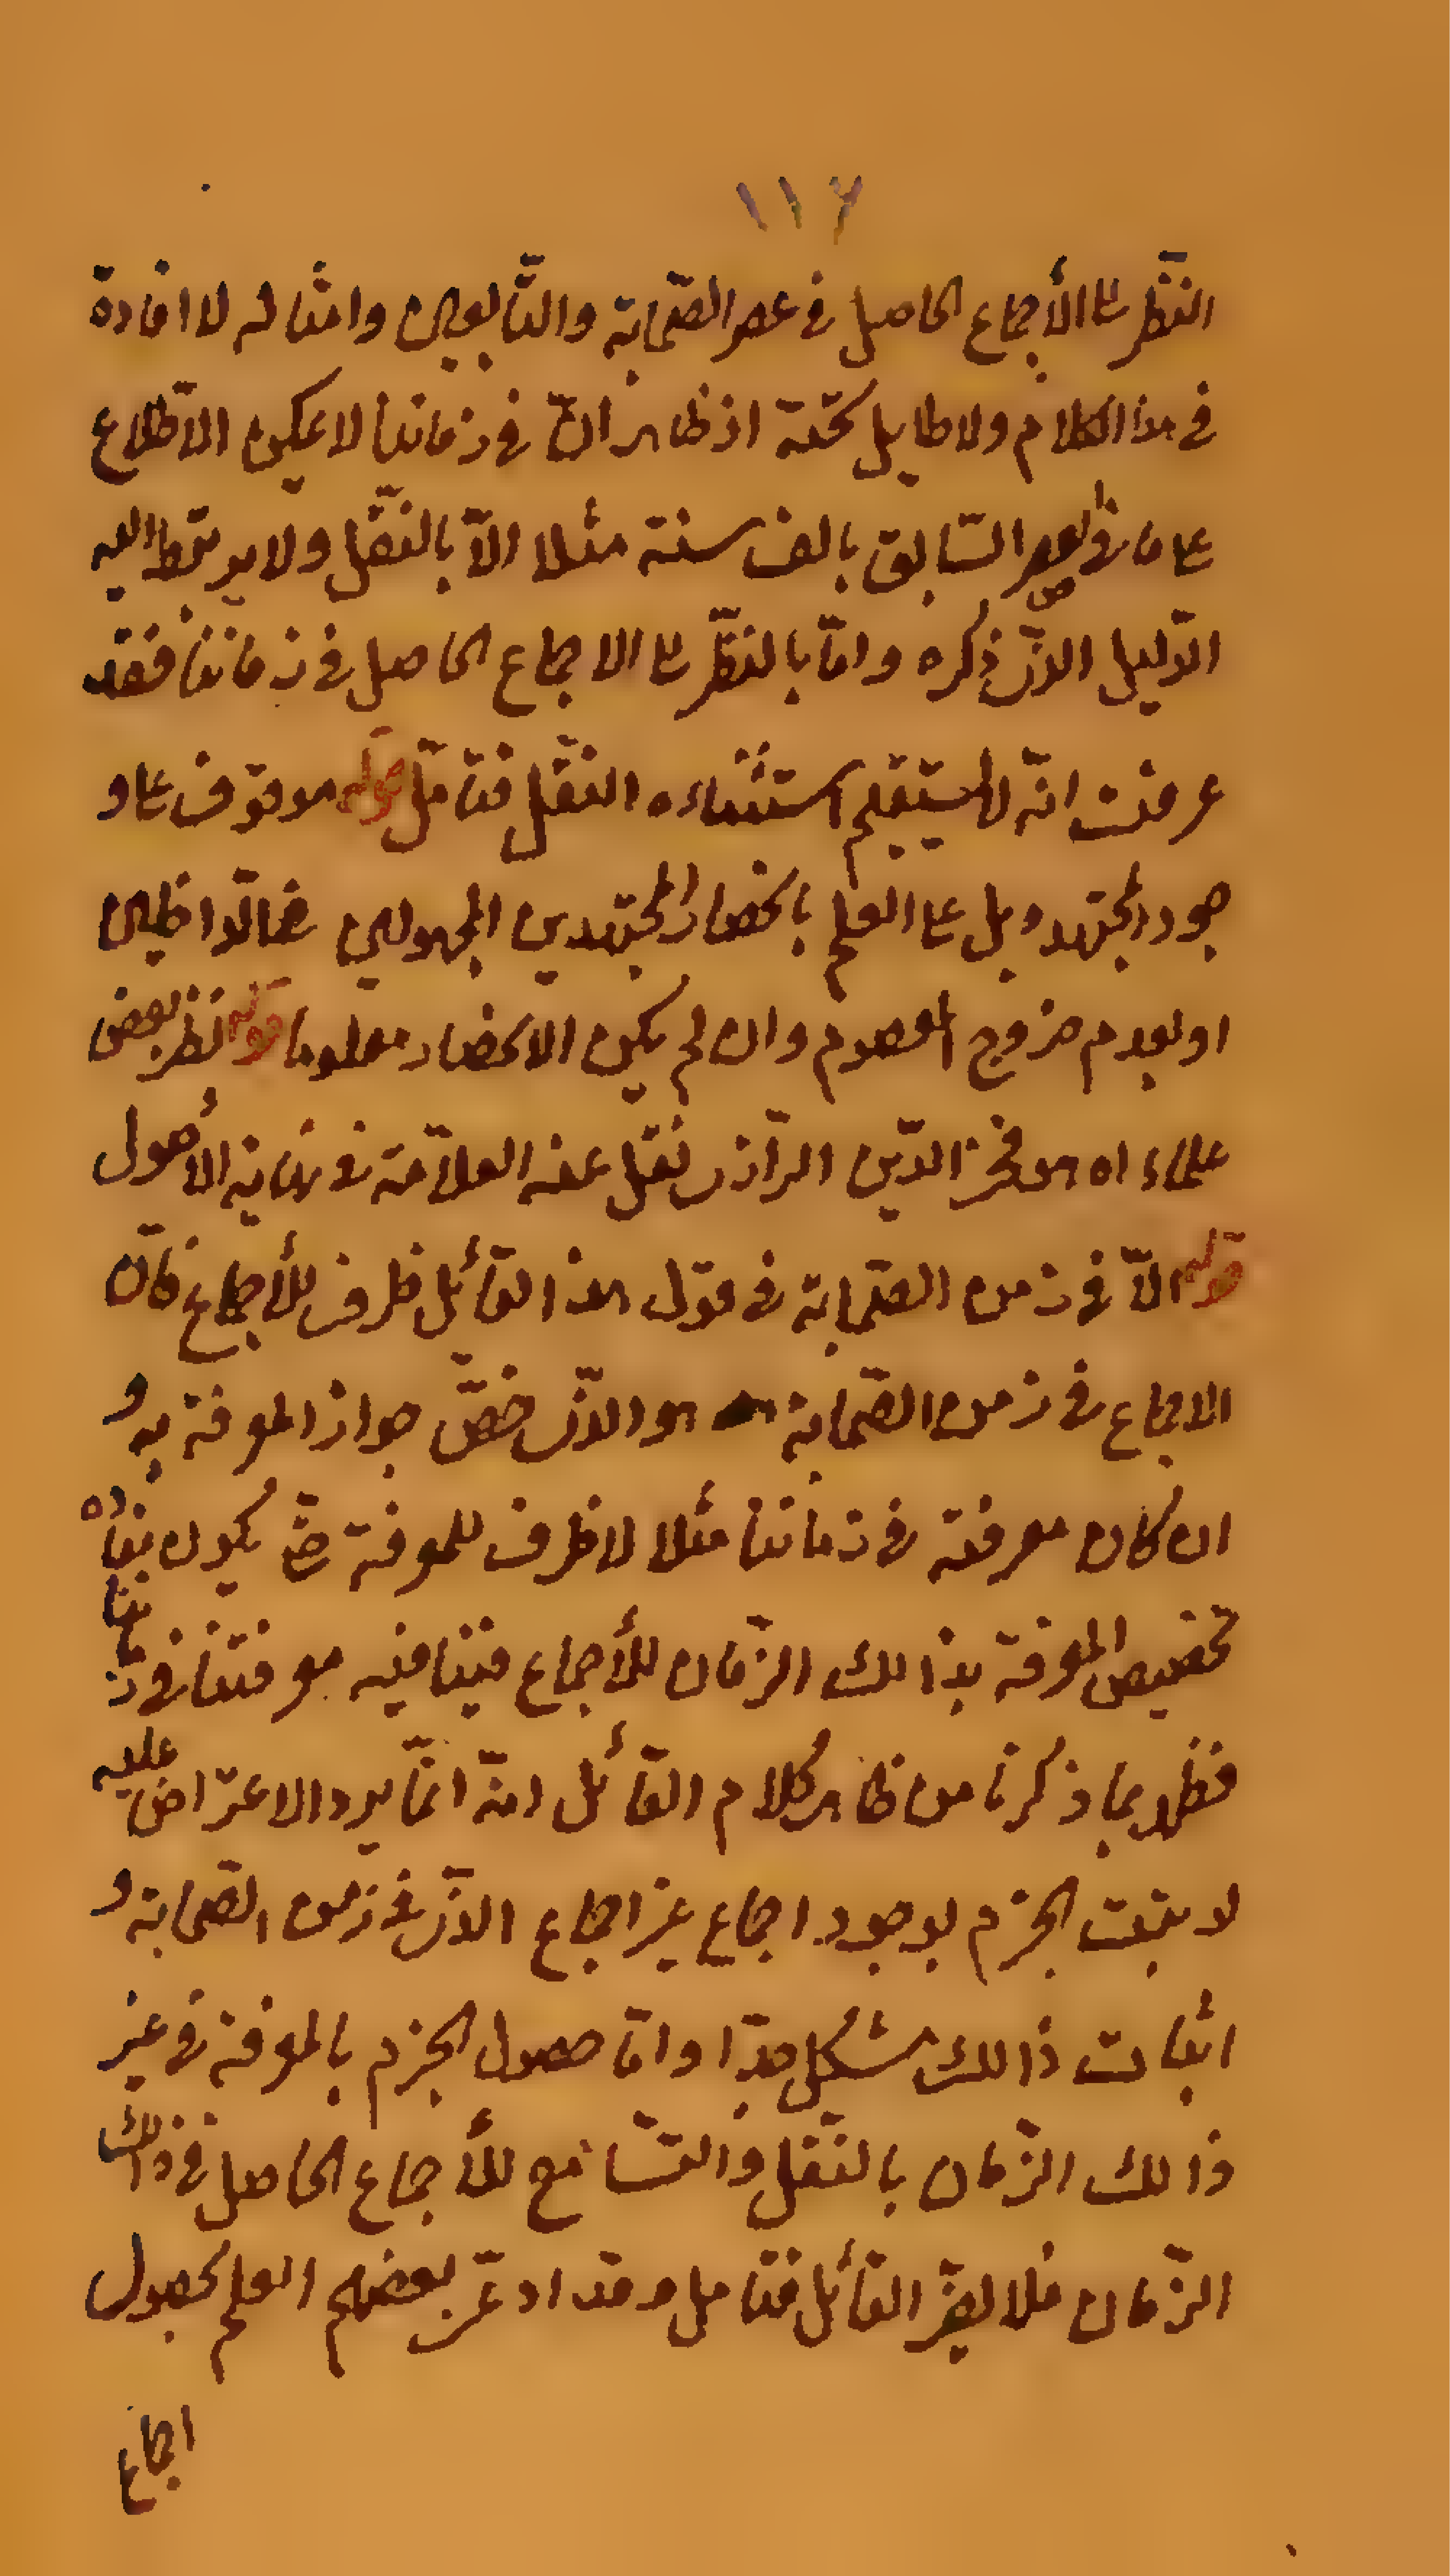 ١١٢
النّظر الى الأجماع الحاصل فى عصر الصّحابة والتّابعين وامثاله لا افادة
فى هذا الكلام ولا طايل تحته اذ ظاهر انّ فى زماننا لا يمكن الاطّلاع
على ما فى العصر السّابق بالف سنة مثلا الّا بالنّقل ولا يرتبط اليه
الدّليل الذى ذكره وامّا بالنّظر الى الاجماع الحاصل فى زماننا فقد
عرفت انّه لا يستقيم استثناءه النّقل فتامّل قوله موقوف على و
جود المجتهد بل على العلم بانحصار المجتهدين المجهولين فما قالوا
او بعدم خروج المعصوم وان لم يكن الانحصار معلوما قوله نظر بعض
علماء اه هو فخر الدّين الرّازى نقل عنه العلّامة فى نهاية الأصول
قوله الّا فى زمن الصّحابة فى قول هذا القائل ظرف للأجماع فانّ
الاجماع فى زمن الصّحابة هو الذى خصّ جواز المعرفة به و
ان كان معرفته فى زماننا مثلا لا ظرف للمعرفة حتّى يكون بناؤه
تخصيص المعرفة بذالك الزّمان للأجماع فينافيه معرفتنا فى زماننا
فظهر بما ذكرنا من ظاهر كلام القائل انّه انّما يرد الاعتراض عليه
لو ثبت الجزم بوجود اجماع غير اجماع الذى فى زمن الصّحابة و
اثبات ذالك مشكل جدّا وامّا حصول الجزم بالمعرفة فى غير
ذالك الزّمان بالنّقل والتّسامع للأجماع الحاصل فى ذالك
الزّمان فلا يضرّ القائل فتامل وقد ادعى بعضهم العلم بحصول
اجماع